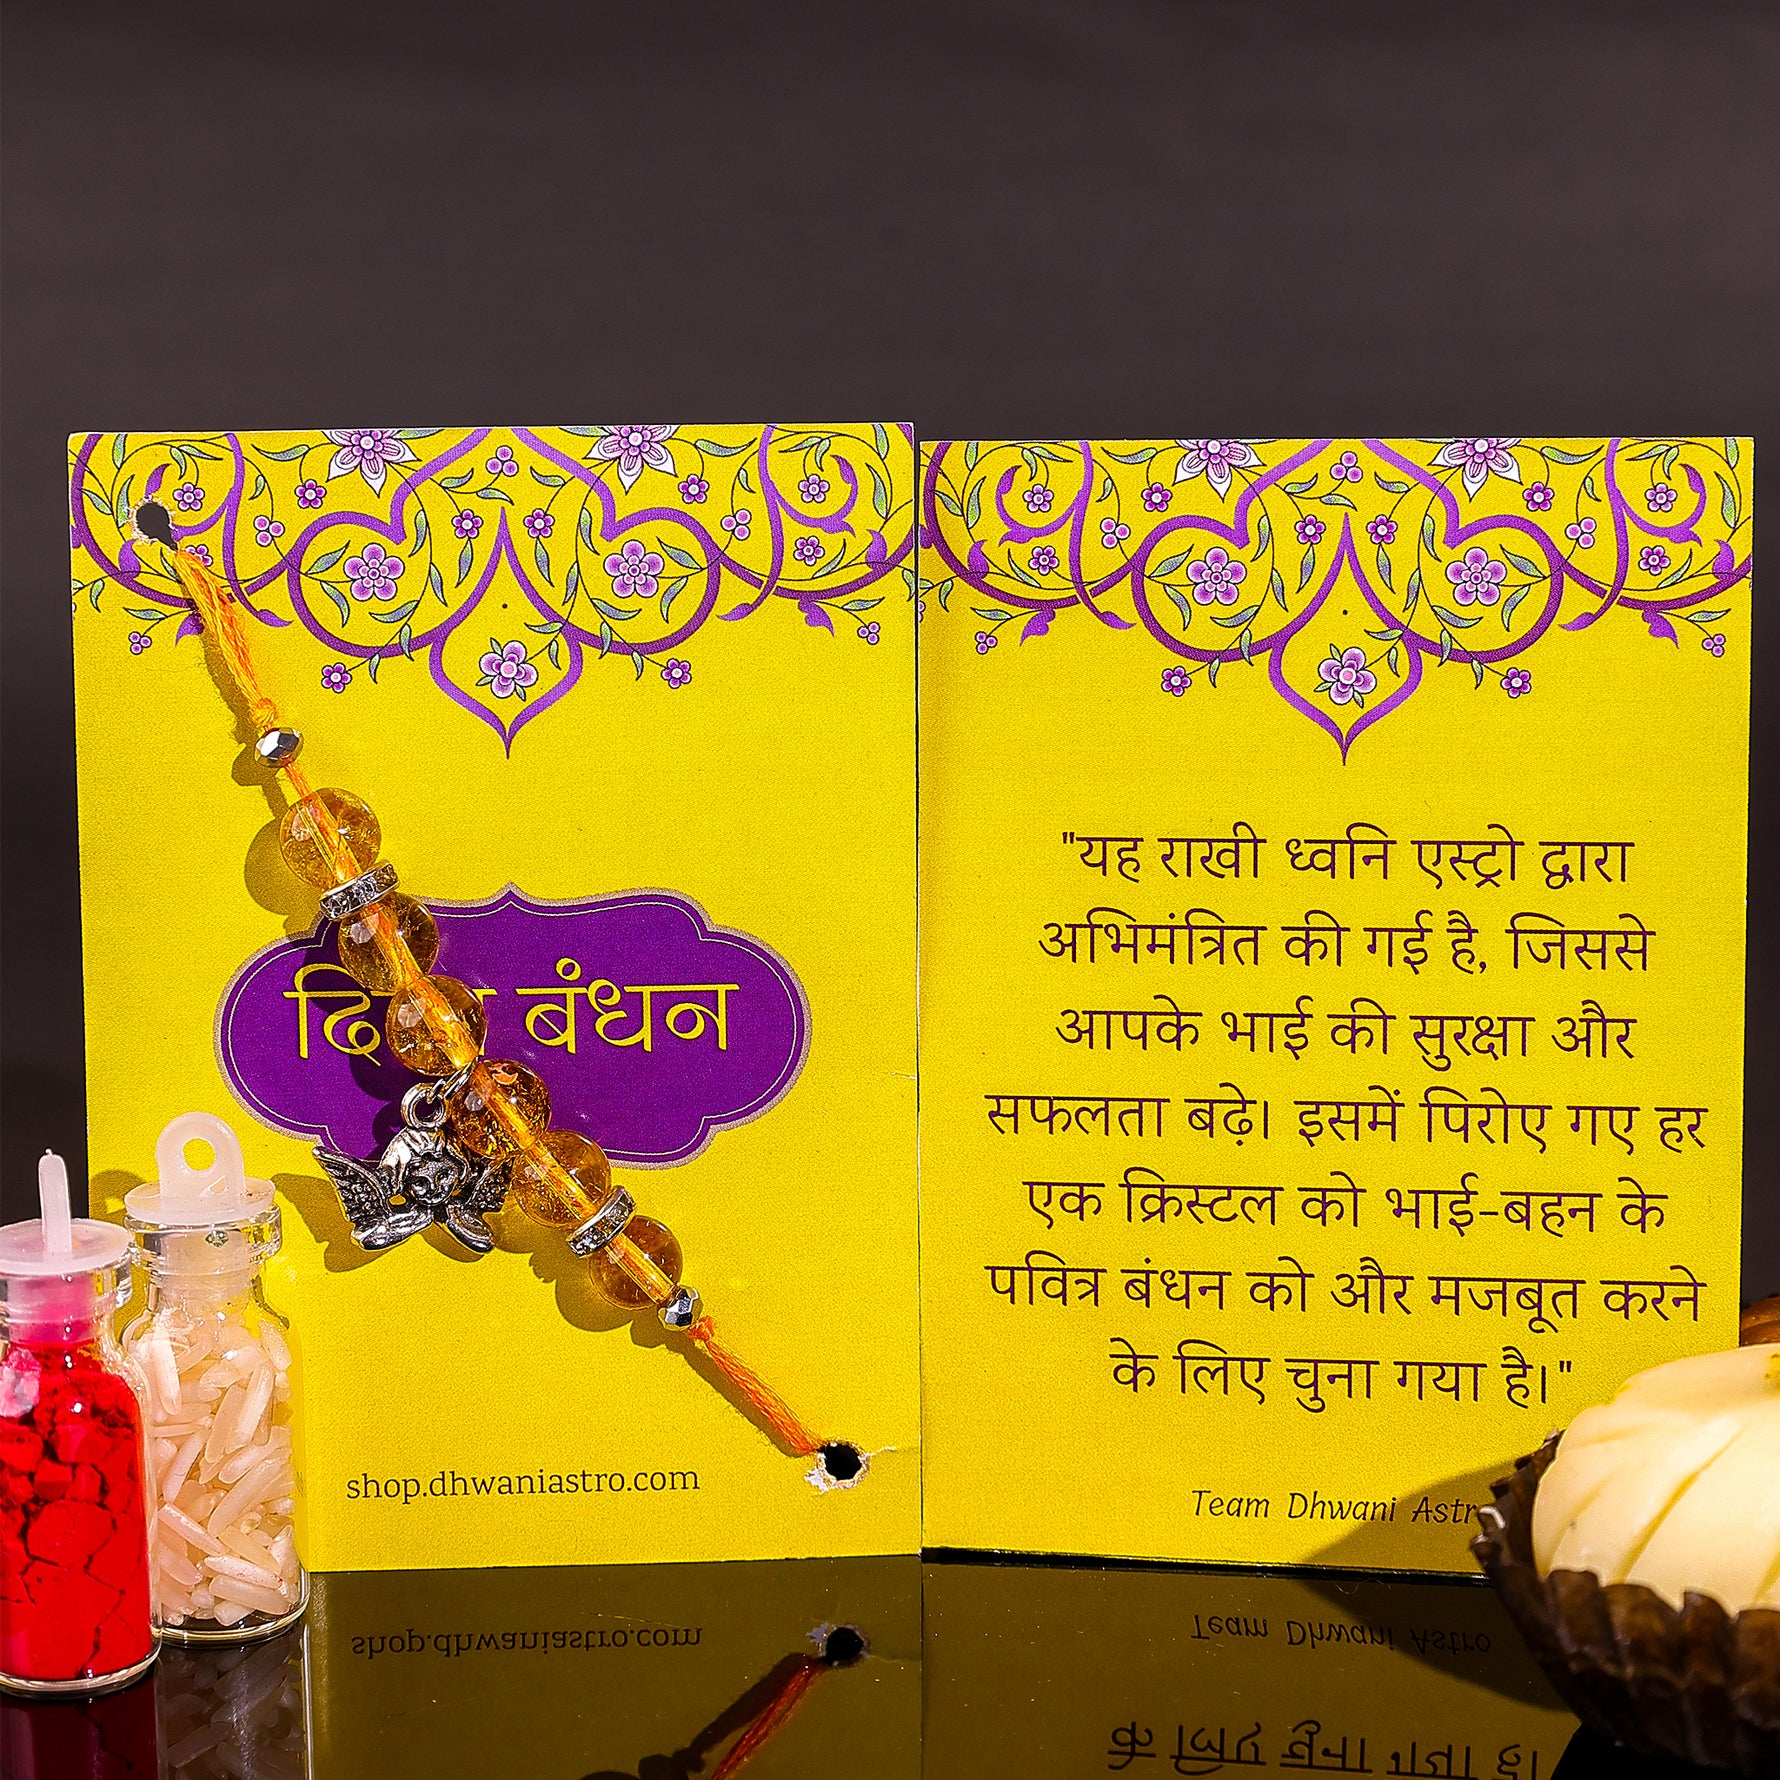 बंधन
shop.dhwaniastro.com
"यह राखी ध्वनि एस्ट्रो द्वारा
अभिमंत्रित की गई है, जिससे
आपके भाई की सुरक्षा और
सफलता बढ़े। इसमें पिरोए गए हर
एक क्रिस्टल को भाई-बहन के
पवित्र बंधन को और मजबूत करने
के लिए चुना गया है।"
Team Dhwani Astro